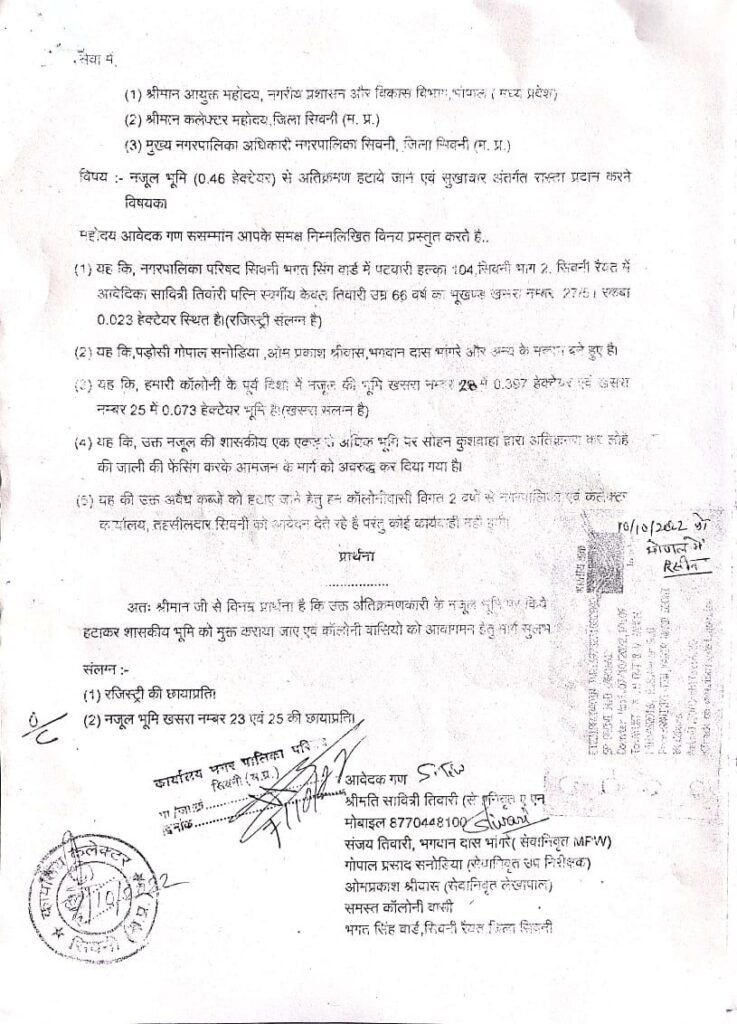 सेवा में,
(1) श्रीमान आयुक्त महोदय, नगरीय प्रशासन और विकास विभाग,भोपाल ( मध्य प्रदेश)
(2) श्रीमान कलेक्टर महोदय,जिला सिवनी (म. प्र.)
(3) मुख्य नगरपालिका अधिकारी नगरपालिका सिवनी, जिला सिवनी (म. प्र.)
विषय :- नजूल भूमि (0.46 हेक्टेयर) से अतिक्रमण हटाये जाने एवं सुखाचार अंतर्गत रास्ता प्रदान करने
विषयक।
महोदय आवेदक गण ससम्मान आपके समक्ष निम्नलिखित विनय प्रस्तुत करते है..
(1) यह कि, नगरपालिका परिषद सिवनी भगत सिंग वार्ड में पटवारी हल्का 104,सिवनी भाग 2, सिवनी रैयत में
आवेदिका सावित्री तिवारी पत्नि स्वर्गीय केवल तिवारी उम्र 66 वर्ष का भूखण्ड खसरा नम्बर 27/5 रकबा
0.023 हेक्टेयर स्थित है।(रजिस्ट्री संलग्न है)
(2) यह कि,पड़ोसी गोपाल सनोडिया ,ओम प्रकाश श्रीवास,भगवान दास भांगरे और अन्य के मकान बने हुए है।
(3) यह कि, हमारी कॉलोनी के पूर्व दिशा में नजूल की भूमि खसरा नम्बर में 0.397 हेक्टेयर एवं खसरा
नम्बर 25 में 0.073 हेक्टेयर भूमि है।(खसरा संलग्न है)
(4) यह कि, उक्त नजूल की शासकीय एक एकड़ से अधिक भूमि पर सोहन कुशवाहा द्वारा अतिक्रमण कर लोहे
की जाली की फेंसिंग करके आमजन के मार्ग को अवरुद्ध कर दिया गया है।
(5) यह की उक्त अवैध कब्जे को हटाए जाने हेतु हम कॉलोनीवासी विगत 2 वर्षों से नगरपालिका एवं कलेक्टर
कार्यालय, तहसीलदार सिवनी को आवेदन देते रहे है परंतु कोई कार्यवाही नही हुयी।
10/10/2022 को
भोपाल में
रिसीव
प्रार्थना
.............
अतः श्रीमान जी से विनम्र प्रार्थना है कि उक्त अतिक्रमणकारी के नजूल भूमि पर किये
हटाकर शासकीय भूमि को मुक्त कराया जाए एवं कॉलोनी वासियो को आवागमन हेतु मार्ग सुलभ
संलग्न :-
(1) रजिस्ट्री की छायाप्रति।
(2) नजूल भूमि खसरा नम्बर 23 एवं 25 की छायाप्रति।
O/C
कार्यालय नगर पालिका परिषद
सिवनी (म.प्र.)
दिनांक
आवेदक गण
श्रीमति सावित्री तिवारी (सेवानिवृत ए एन
मोबाइल 8770448100
संजय तिवारी, भगवान दास भांगरे( सेवानिवृत MPW)
गोपाल प्रसाद सनोडिया (सेवानिवृत उप निरीक्षक)
ओमप्रकाश श्रीवास (सेवानिवृत लेखापाल)
समस्त कॉलोनी वासी
भगत सिंह वार्ड,सिवनी रैयत जिला सिवनी
कार्यालय कलेक्टर
सिवनी (म.प्र.)